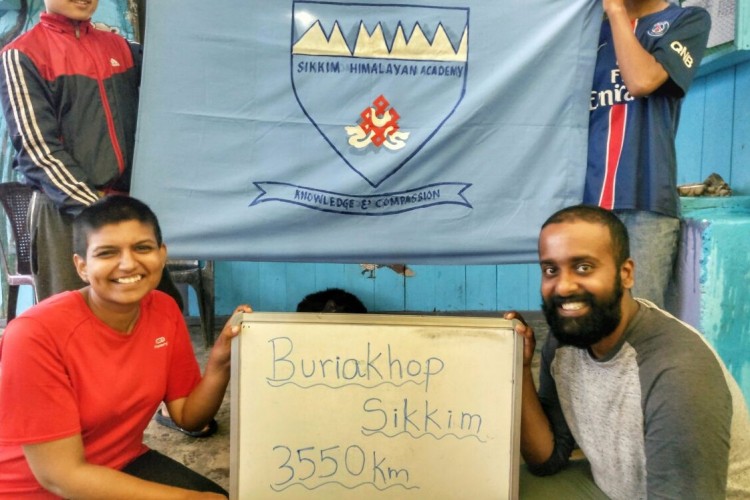 SIKKIM HIMALAYAN ACADEMY
KNOWLEDGE & COMPASSION
QNB
Buriakhop
Sikkim
3550 km